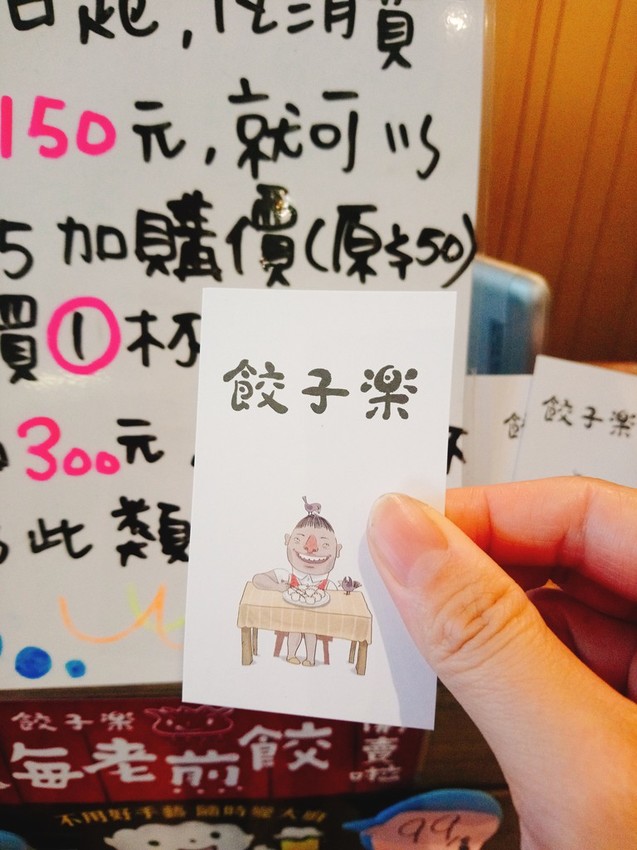 日起,
消費
150元,就可以
加購價(原$50)
買①杯
300元
此類
餃子楽
餃子楽
餃子楽
海老煎餃
開賣啦
不用好手藝 隨時變大廚
99